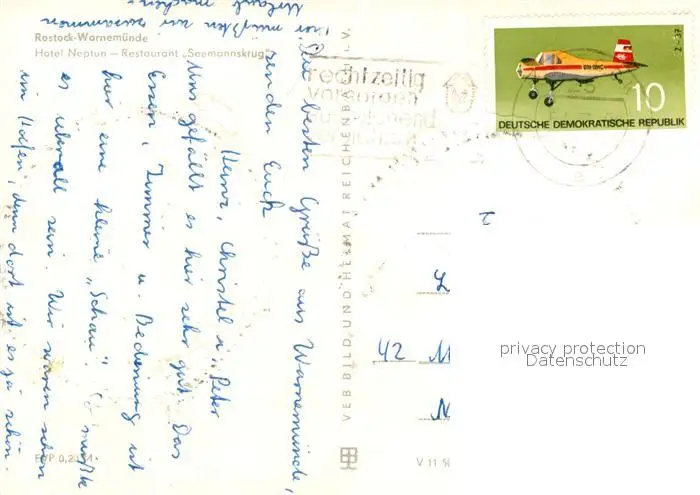 Rostock-Warnemünde
Hotel Neptun — Restaurant „Seemannskrug"
Die besten Grüße aus Warnemünde,
senden Euch
Heinz, Christel u. Peter
Uns gefällt es hier sehr gut. Das
Essen, Zimmer u. Bedienung ist
hier eine kleine „Schau". So müßte
es überall sein. Wir waren schon
im Hafen, denn dort ist es ja schön.
Hier müßten wir zusammen
Urlaub machen.
EVP 0,20 M
VEB BILD UND HEIMAT REICHENBACH i. V.
V 11 50
rechtzeitig
vorsorgen
Z-37
DM-SMC
10
DEUTSCHE DEMOKRATISCHE REPUBLIK
42 M
privacy protection
Datenschutz